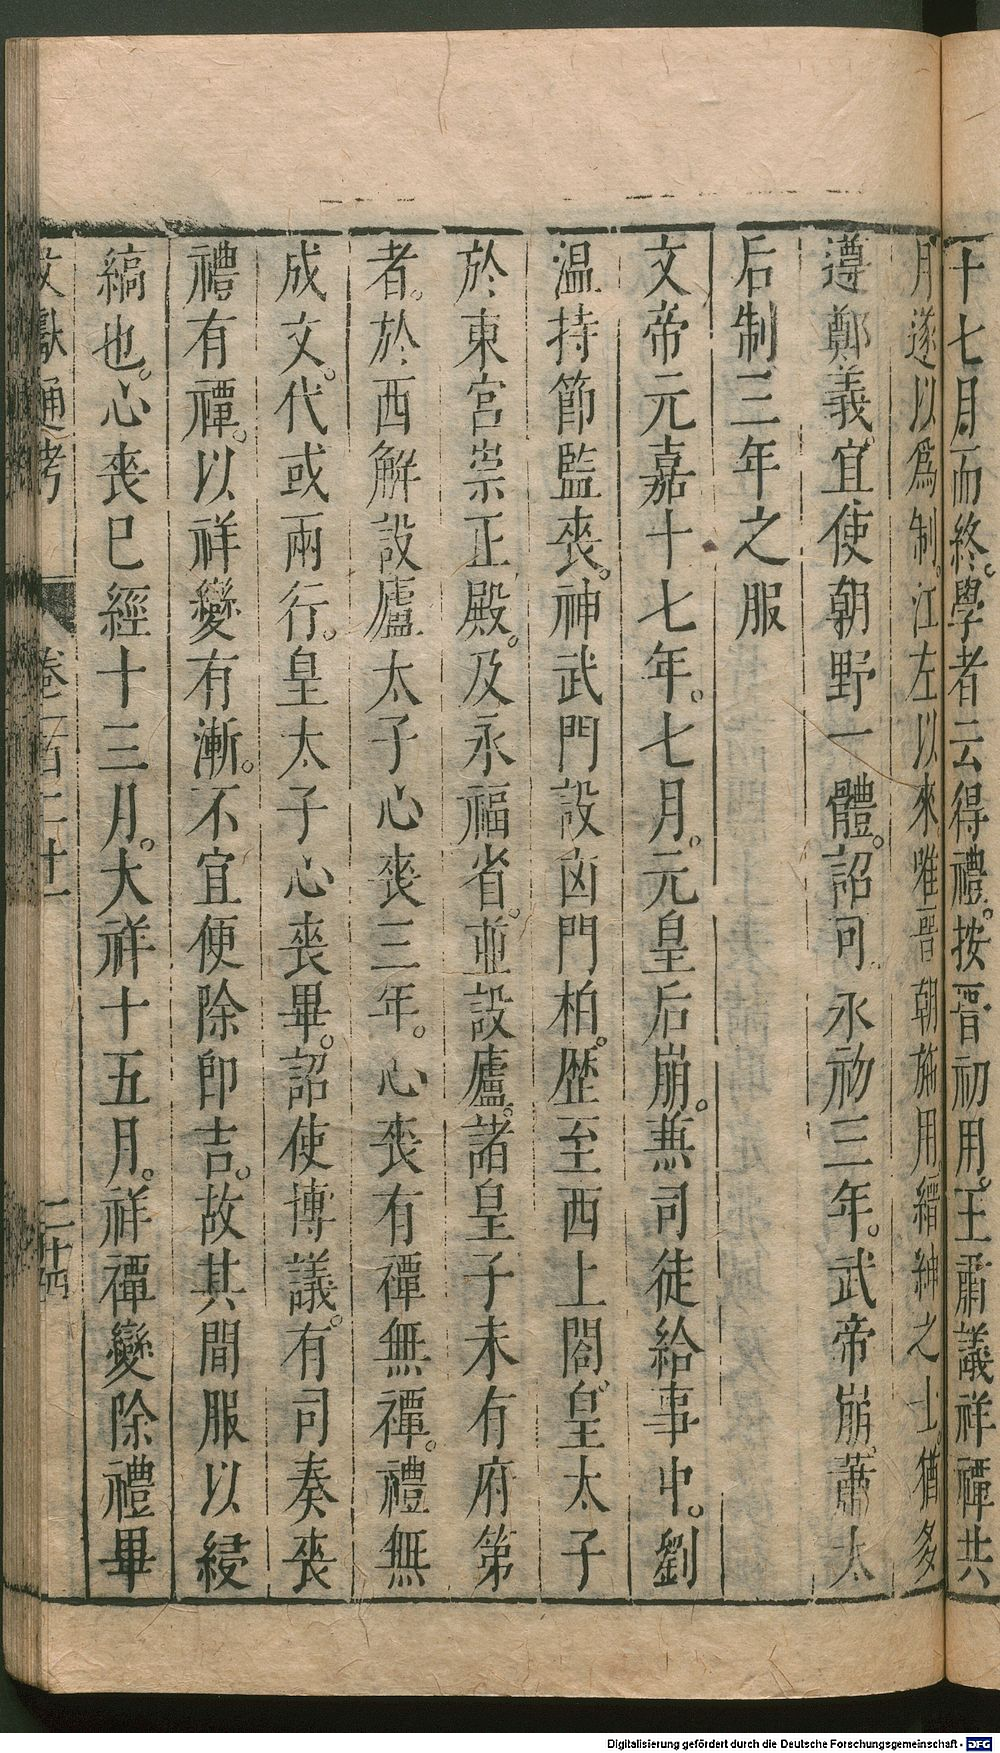 十七月而終。學者云得禮。按晋初用。王肅議祥禫共
月遂以爲制。江左以來唯晋朝施用。縉紳之士。猶多
遵鄭義。宜使朝野一體。詔可。永初三年。武帝崩。蕭太
后制三年之服
文帝元嘉十七年。七月。元皇后崩。兼司徒給事中。劉
温持節監喪。神武門設凶門柏。歷至西上閤。皇太子
於東宮崇正殿。及永福省。並設廬。諸皇子未有府第
者。於西解設廬太子心喪三年。心喪有禫無禫。禮無
成文。代或兩行。皇太子心喪畢。詔使博議。有司奏喪
禮有禫。以祥變有漸。不宜便除即吉。故其間服以綅
縞也。心喪已經十三月。大祥十五月。祥禫變除禮畢
文獻通考 卷一百二十一 二十四
Digitalisierung gefördert durch die Deutsche Forschungsgemeinschaft - DFG